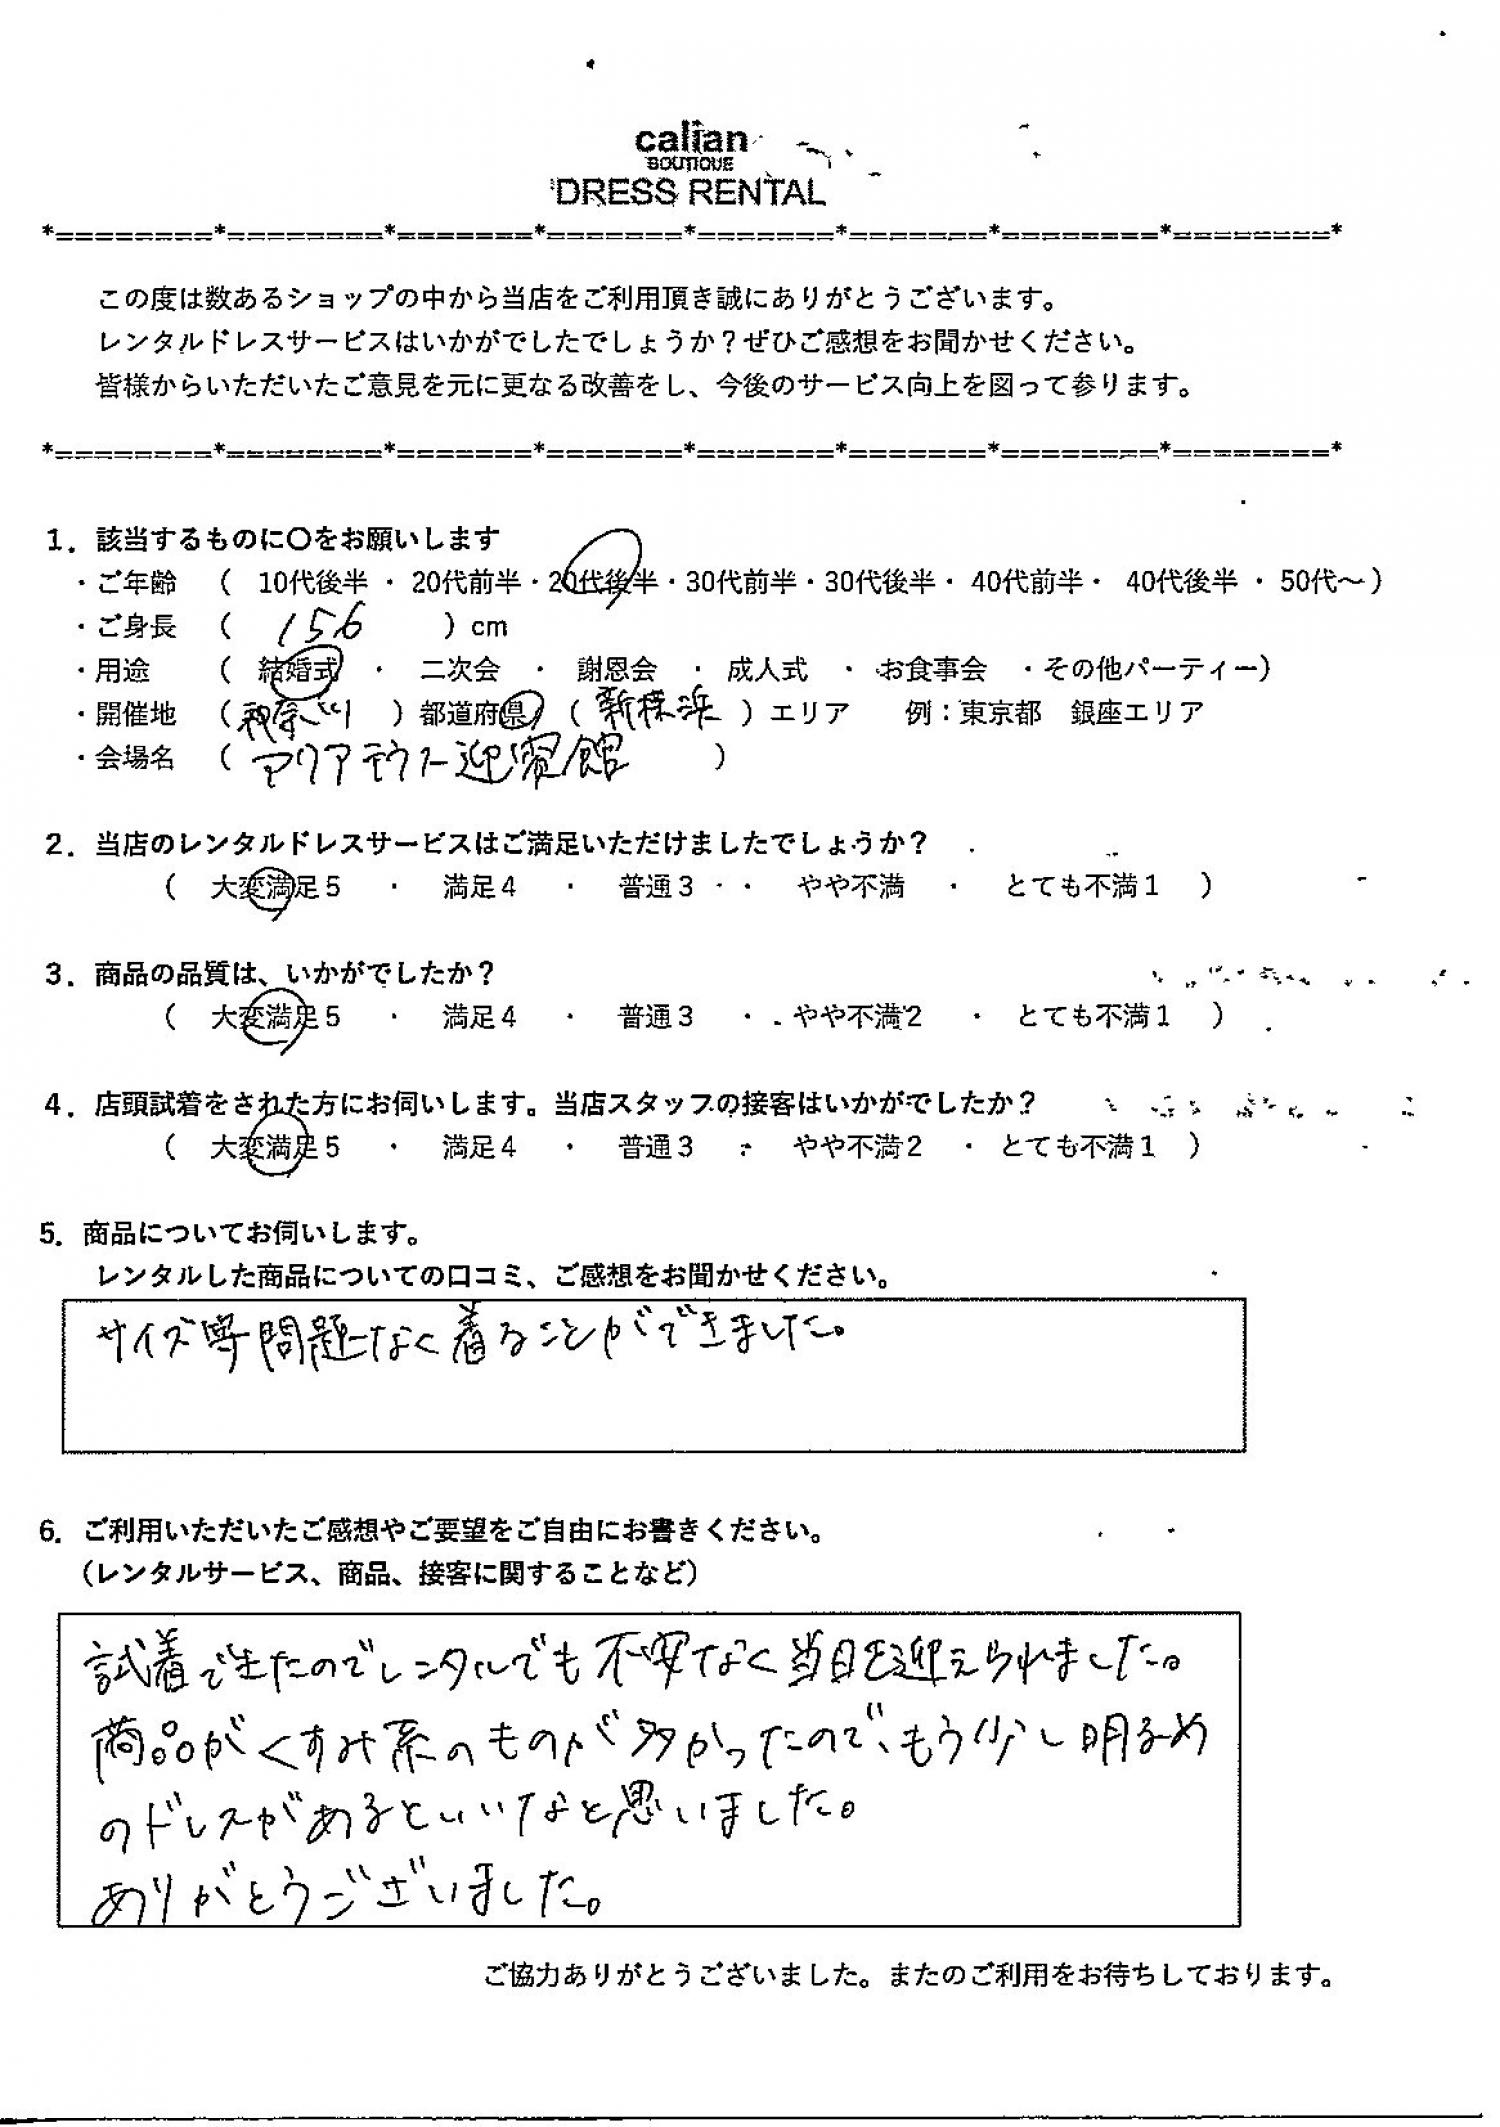 calian
BOUTIQUE
DRESS RENTAL
*========*========*=======*=======*=======*=======*========*========*
この度は数あるショップの中から当店をご利用頂き誠にありがとうございます。
レンタルドレスサービスはいかがでしたでしょうか？ぜひご感想をお聞かせください。
皆様からいただいたご意見を元に更なる改善をし、今後のサービス向上を図って参ります。
*========*========*=======*=======*=======*=======*========*========*
1．該当するものに〇をお願いします
・ご年齢 （ 10代後半 ・ 20代前半・20代後半・30代前半・30代後半・ 40代前半・ 40代後半 ・ 50代～）
・ご身長 （ 156 ）cm
・用途 （ 結婚式 ・ 二次会 ・ 謝恩会 ・ 成人式 ・ お食事会 ・その他パーティー）
・開催地 （神奈川 ）都道府県 （ 新横浜 ）エリア 例：東京都 銀座エリア
・会場名 （ アクアテラス迎賓館 ）
2．当店のレンタルドレスサービスはご満足いただけましたでしょうか？
（ 大変満足5 ・ 満足4 ・ 普通3 ・ やや不満 ・ とても不満1 ）
3．商品の品質は、いかがでしたか？
（ 大変満足5 ・ 満足4 ・ 普通3 ・ やや不満2 ・ とても不満1 ）
4．店頭試着をされた方にお伺いします。当店スタッフの接客はいかがでしたか？
（ 大変満足5 ・ 満足4 ・ 普通3 ・ やや不満2 ・ とても不満1 ）
5．商品についてお伺いします。
レンタルした商品についての口コミ、ご感想をお聞かせください。
サイズ等問題なく着ることができました。
6．ご利用いただいたご感想やご要望をご自由にお書きください。
（レンタルサービス、商品、接客に関することなど）
試着できたのでレンタルでも不安なく当日を迎えられました。
商品がくすみ系のものが多かったので、もう少し明るめ
のドレスがあるといいなと思いました。
ありがとうございました。
ご協力ありがとうございました。またのご利用をお待ちしております。